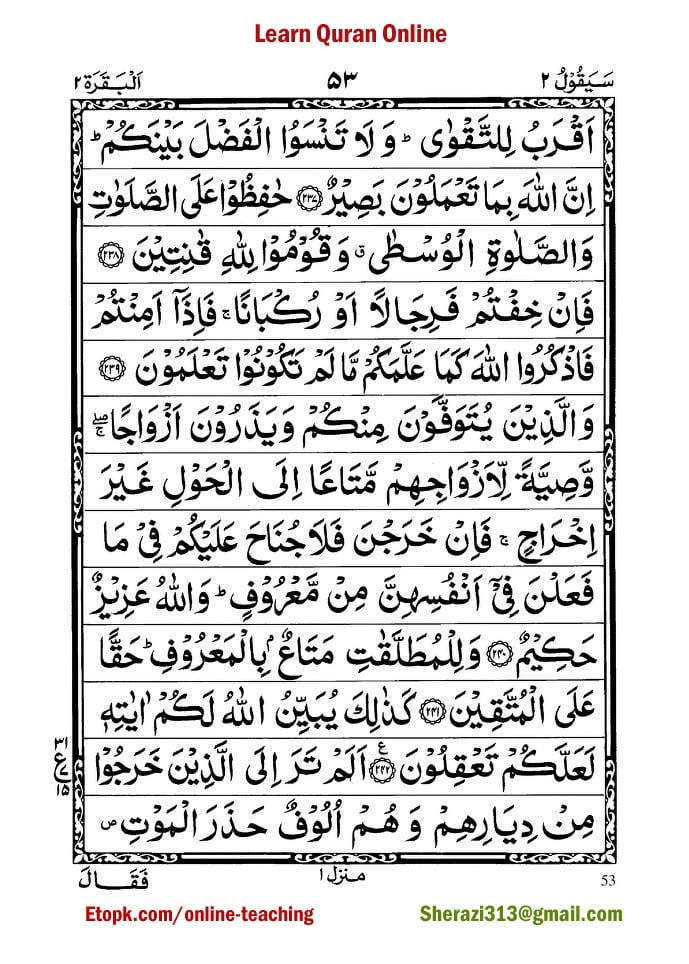 Learn Quran Online
سَيَقُوْلُ ٢ ٥٣ اَلْبَقَرَة ٢
اَقْرَبُ لِلتَّقْوٰى ؕ وَ لَا تَنْسَوُا الْفَضْلَ بَيْنَكُمْ ؕ
اِنَّ اللّٰهَ بِمَا تَعْمَلُوْنَ بَصِيْرٌ ﴿٢٣٧﴾ حٰفِظُوْا عَلَى الصَّلَوٰتِ
وَالصَّلٰوةِ الْوُسْطٰى ۗ وَقُوْمُوْا لِلّٰهِ قٰنِتِيْنَ ﴿٢٣٨﴾
فَاِنْ خِفْتُمْ فَرِجَالًا اَوْ رُكْبَانًا ۚ فَاِذَاۤ اَمِنْتُمْ
فَاذْكُرُوا اللّٰهَ كَمَا عَلَّمَكُمْ مَّا لَمْ تَكُوْنُوْا تَعْلَمُوْنَ ﴿٢٣٩﴾
وَالَّذِيْنَ يُتَوَفَّوْنَ مِنْكُمْ وَيَذَرُوْنَ اَزْوَاجًا ۖۚ
وَّصِيَّةً لِّاَزْوَاجِهِمْ مَّتَاعًا اِلَى الْحَوْلِ غَيْرَ
اِخْرَاجٍ ۚ فَاِنْ خَرَجْنَ فَلَا جُنَاحَ عَلَيْكُمْ فِيْ مَا
فَعَلْنَ فِيْۤ اَنْفُسِهِنَّ مِنْ مَّعْرُوْفٍ ؕ وَاللّٰهُ عَزِيْزٌ
حَكِيْمٌ ﴿٢٤٠﴾ وَلِلْمُطَلَّقٰتِ مَتَاعٌۢ بِالْمَعْرُوْفِ ؕ حَقًّا
عَلَى الْمُتَّقِيْنَ ﴿٢٤١﴾ كَذٰلِكَ يُبَيِّنُ اللّٰهُ لَكُمْ اٰيٰتِهٖ
لَعَلَّكُمْ تَعْقِلُوْنَ ﴿٢٤٢﴾ ع اَلَمْ تَرَ اِلَى الَّذِيْنَ خَرَجُوْا
٣١
ع ٧
١٥
مِنْ دِيَارِهِمْ وَ هُمْ اُلُوْفٌ حَذَرَ الْمَوْتِ ص
فَقَالَ منزل ١ 53
Etopk.com/online-teaching Sherazi313@gmail.com